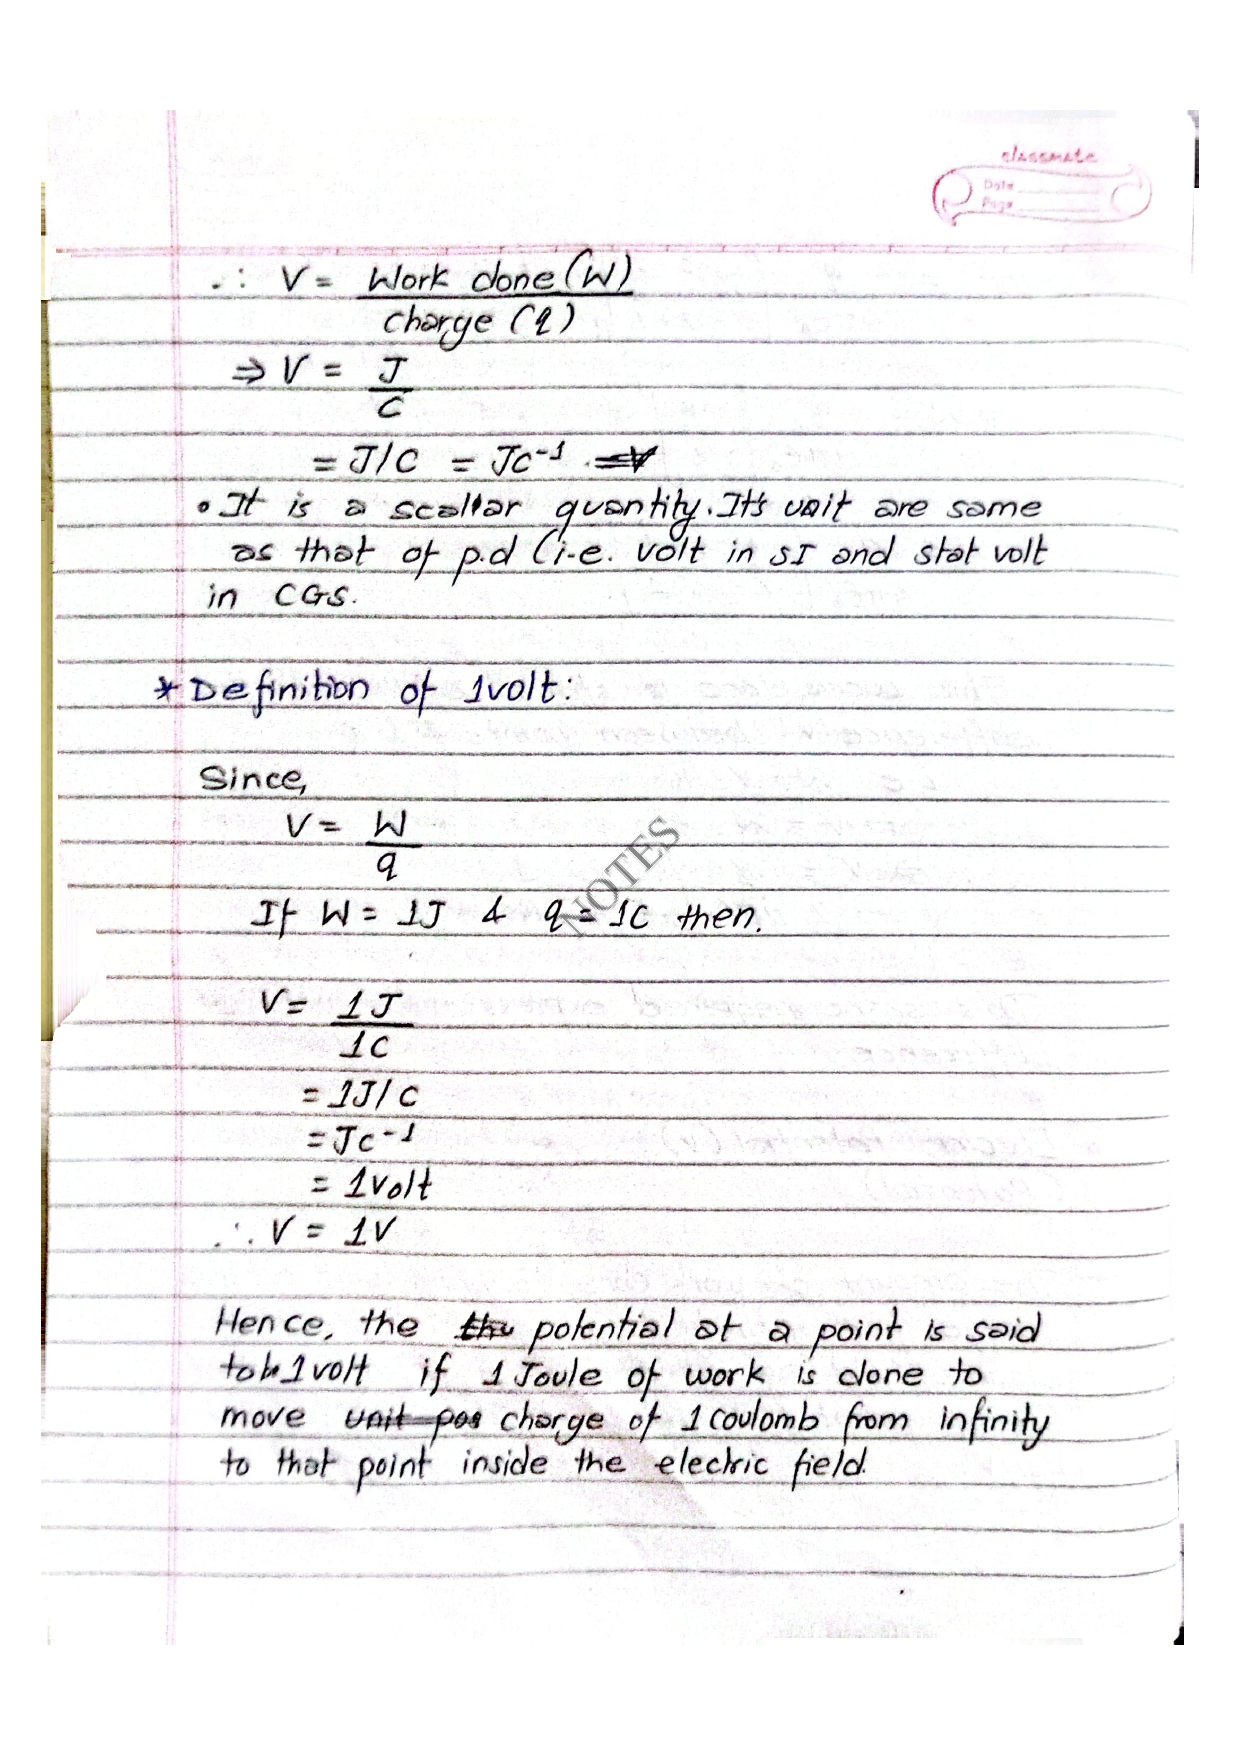 classmate
Date
Page
∴ V = Work done (W)
charge (q)
⇒ V = J
C
= J/C = JC⁻¹ = V
• It is a scallar quantity. It's unit are same
as that of p.d (i.e. volt in SI and stat volt
in CGS.
* Definition of 1volt:
Since,
V = W
q
If W = 1J & q = 1C then.
V = 1J
1C
= 1J/C
= JC⁻¹
= 1volt
∴ V = 1V
Hence, the the potential at a point is said
to be 1volt if 1 Joule of work is done to
move unit pos charge of 1 coulomb from infinity
to that point inside the electric field.
NOTES